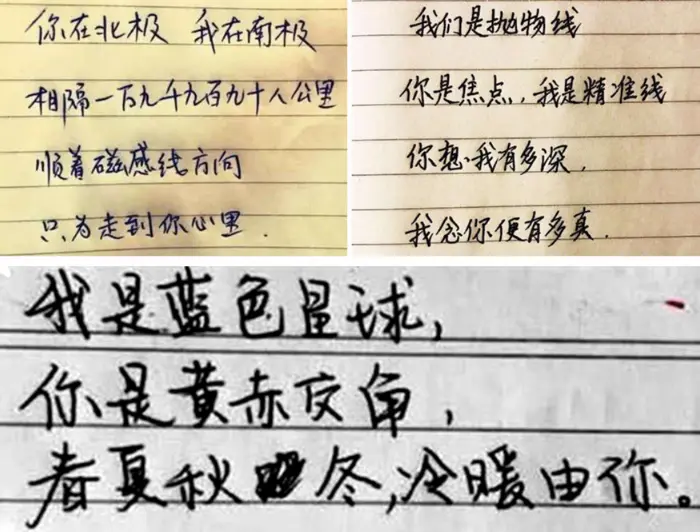 你在北极 我在南极
相隔一万九千九百九十八公里
顺着磁感线方向
只为走到你心里.
我们是抛物线
你是焦点,我是精准线
你想我有多深,
我念你便有多真.
我是蓝色星球,
你是黄赤交角,
春夏秋冬,冷暖由你。